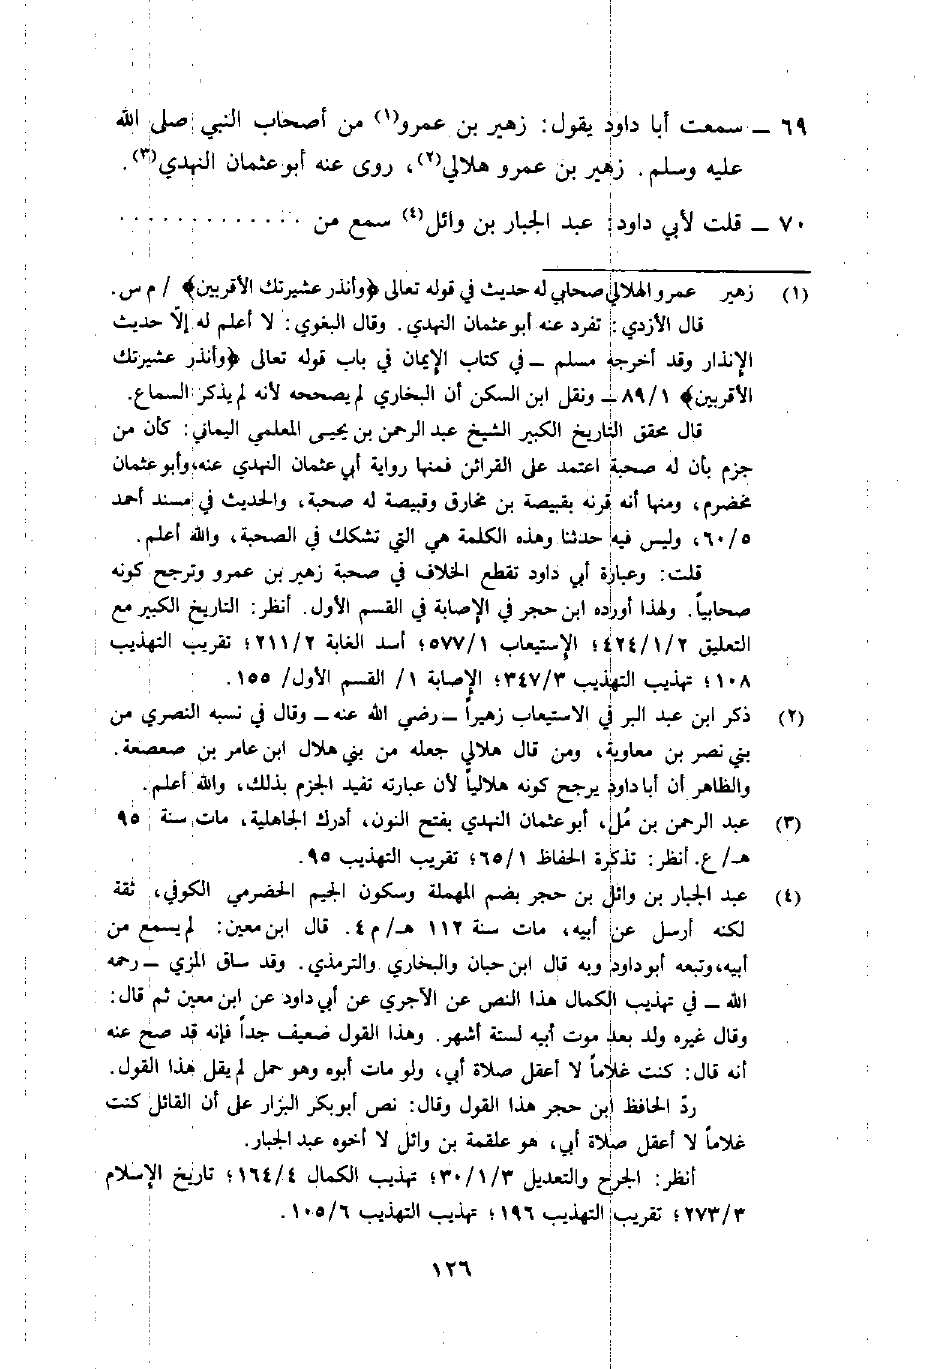 ٦٩ ــ سمعت أبا داود يقول: زهير بن عمرو(١) من أصحاب النبي صلى الله
عليه وسلم. زهير بن عمرو هلالي(٢)، روى عنه أبو عثمان النهدي(٣).
٧٠ ــ قلت لأبي داود: عبد الجبار بن وائل(٤) سمع من . . . . . . . . . . . . .
(١) زهير عمرو الهلالي صحابي له حديث في قوله تعالى ﴿وأنذر عشيرتك الأقربين﴾ / م س.
قال الأزدي: تفرد عنه أبو عثمان النهدي. وقال البغوي: لا أعلم له إلاّ حديث
الإنذار وقد أخرجه مسلم ــ في كتاب الإيمان في باب قوله تعالى ﴿وأنذر عشيرتك
الأقربين﴾ ٨٩/١ ــ ونقل ابن السكن أن البخاري لم يصححه لأنه لم يذكر السماع.
قال محقق التاريخ الكبير الشيخ عبد الرحمن بن يحيى المعلمي اليماني: كأن من
جزم بأن له صحبة اعتمد على القرائن فمنها رواية أبي عثمان النهدي عنه، وأبو عثمان
مخضرم، ومنها أنه قرنه بقبيصة بن مخارق وقبيصة له صحبة، والحديث في مسند أحمد
٦٠/٥، وليس فيه حدثنا وهذه الكلمة هي التي تشكك في الصحبة، والله أعلم.
قلت: وعبارة أبي داود تقطع الخلاف في صحبة زهير بن عمرو وترجح كونه
صحابياً. ولهذا أورده ابن حجر في الإصابة في القسم الأول. أنظر: التاريخ الكبير مع
التعليق ٤٢٤/١/٢؛ الإستيعاب ٥٧٧/١؛ أسد الغابة ٢١١/٢؛ تقريب التهذيب
١٠٨؛ تهذيب التهذيب ٣٤٧/٣؛ الإصابة ١/ القسم الأول/ ١٥٥.
(٢) ذكر ابن عبد البر في الاستيعاب زهيراً ــ رضي الله عنه ــ وقال في نسبه النصري من
بني نصر بن معاوية، ومن قال هلالي جعله من بني هلال ابن عامر بن صعصعة.
والظاهر أن أبا داود يرجح كونه هلالياً لأن عبارته تفيد الجزم بذلك، والله أعلم.
(٣) عبد الرحمن بن مُل، أبو عثمان النهدي بفتح النون، أدرك الجاهلية، مات سنة ٩٥
هـ/ ع. أنظر: تذكرة الحفاظ ٦٥/١؛ تقريب التهذيب ٩٥.
(٤) عبد الجبار بن وائل بن حجر بضم المهملة وسكون الجيم الحضرمي الكوفي، ثقة
لكنه أرسل عن أبيه، مات سنة ١١٢ هـ/ م ٤. قال ابن معين: لم يسمع من
أبيه، وتبعه أبو داود وبه قال ابن حبان والبخاري والترمذي. وقد ساق المزي ــ رحمه
الله ــ في تهذيب الكمال هذا النص عن الآجري عن أبي داود عن ابن معين ثم قال:
وقال غيره ولد بعد موت أبيه لستة أشهر. وهذا القول ضعيف جداً فإنه قد صح عنه
أنه قال: كنت غلاماً لا أعقل صلاة أبي، ولو مات أبوه وهو حمل لم يقل هذا القول.
ردّ الحافظ ابن حجر هذا القول وقال: نص أبو بكر البزار على أن القائل كنت
غلاماً لا أعقل صلاة أبي، هو علقمة بن وائل لا أخوه عبد الجبار.
أنظر: الجرح والتعديل ٣٠/١/٣؛ تهذيب الكمال ١٦٤/٤؛ تاريخ الإسلام
٢٧٣/٣؛ تقريب التهذيب ١٩٦؛ تهذيب التهذيب ١٠٥/٦.
١٢٦